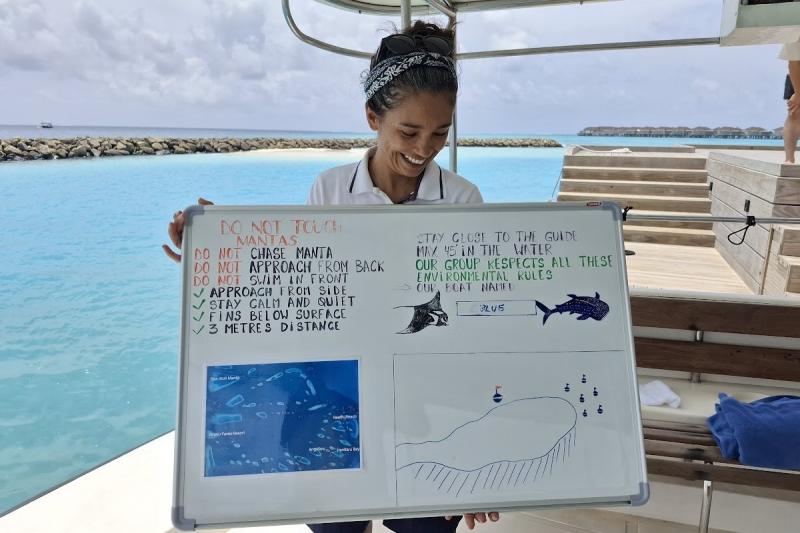 DO NOT TOUCH
MANTAS
DO NOT CHASE MANTA
DO NOT APPROACH FROM BACK
DO NOT SWIM IN FRONT
✓ APPROACH FROM SIDE
✓ STAY CALM AND QUIET
✓ FINS BELOW SURFACE
✓ 3 METRES DISTANCE
STAY CLOSE TO THE GUIDE
MAX 45' IN THE WATER
OUR GROUP RESPECTS ALL THESE
ENVIRONMENTAL RULES
→ OUR BOAT NAMED